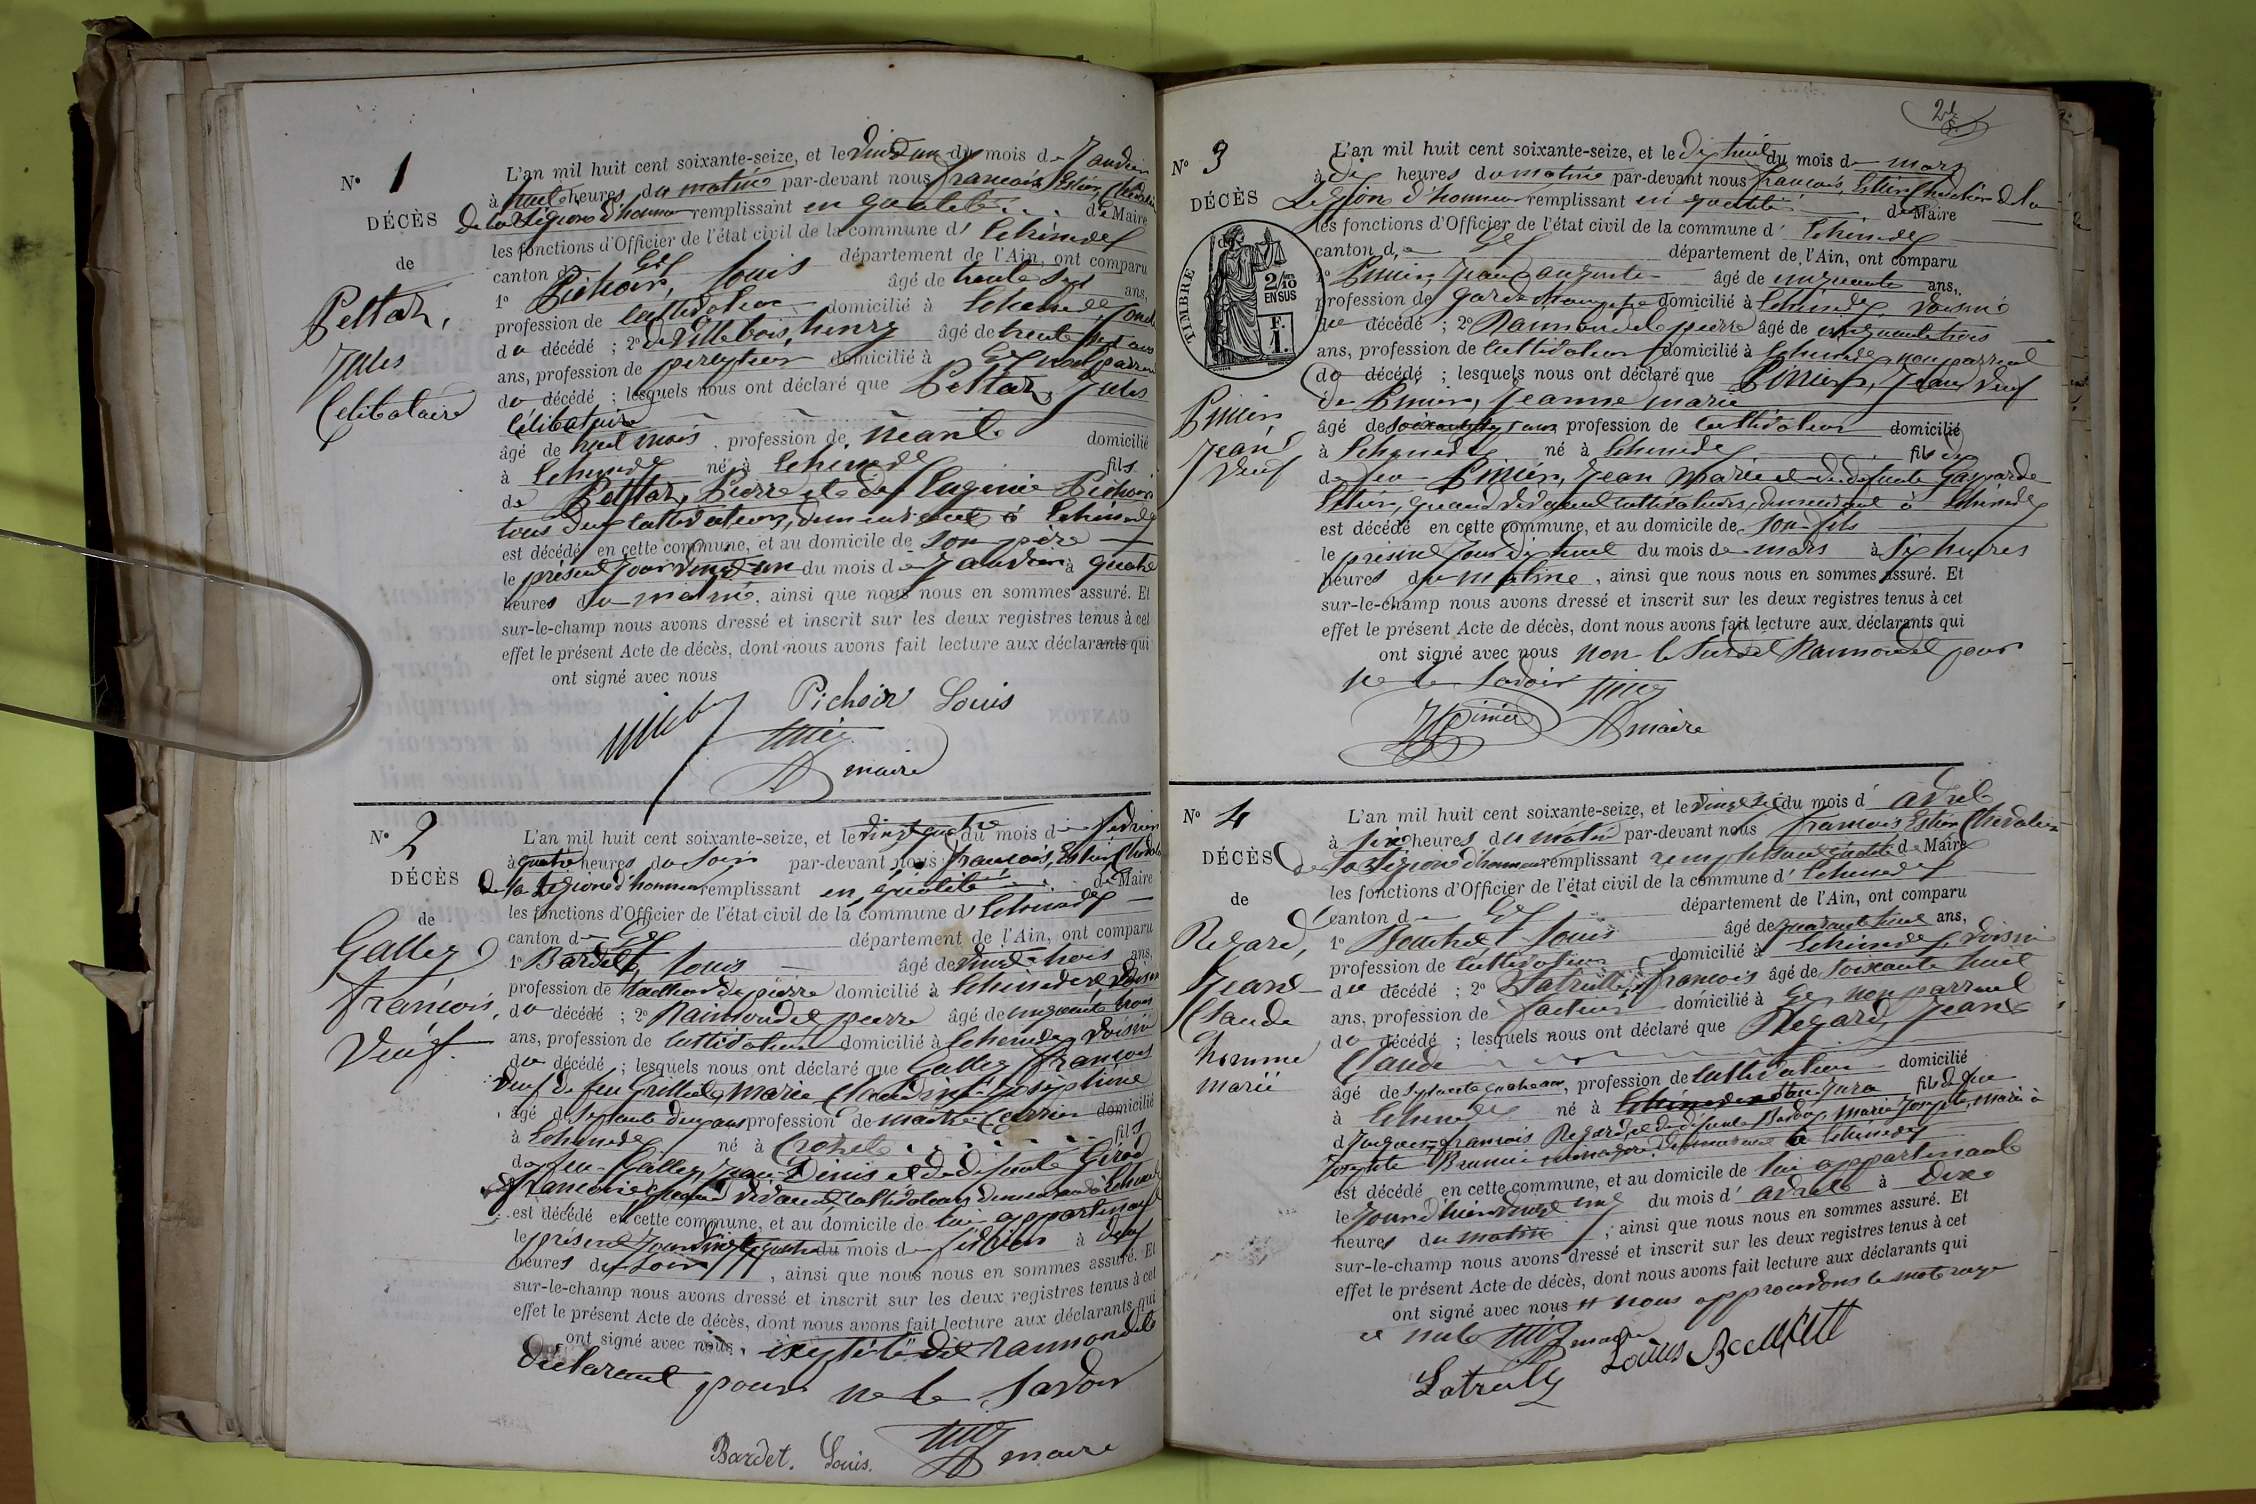 N° 1
DÉCÈS
de
Peltaz,
Jules
Celibataire
L'an mil huit cent soixante-seize, et le vingt un du mois de Janvier
à huit heures du matin par-devant nous francois Estier, Chevalier
de la Légion d'honneur remplissant en qualité de Maire
les fonctions d'Officier de l'état civil de la commune d'Echenevex
canton de Gex département de l'Ain, ont comparu
1° Pichoir, Louis âgé de trente sept ans,
profession de cultivateur domicilié à Echenevex, oncle
du décédé ; 2° de Villebois, henry âgé de trente sept ans
ans, profession de percepteur domicilié à Gex non parent
du décédé ; lesquels nous ont déclaré que Peltaz, Jules
Célibataire
âgé de huit mois, profession de neant domicilié
à Echenevex né à Echenevex fils
de Peltaz, Pierre et de Eugenie Pichoir
tous deux cultivateurs, demeurant à Echenevex
est décédé en cette commune, et au domicile de son père
le présent jour vingt un du mois de Janvier à quatre
heures du matin, ainsi que nous nous en sommes assuré. Et
sur-le-champ nous avons dressé et inscrit sur les deux registres tenus à cet
effet le présent Acte de décès, dont nous avons fait lecture aux déclarants qui
ont signé avec nous
Pichoir Louis
maire
N° 2
DÉCÈS
de
Gallez
francois,
Veuf.
L'an mil huit cent soixante-seize, et le vingt quatre du mois de fevrier
à quatre heures du soir par-devant nous francois, Estier Chevalier
de la Légion d'honneur remplissant en qualité de Maire
les fonctions d'Officier de l'état civil de la commune d'Echenevex
canton de Gex département de l'Ain, ont comparu
1° Bardet, Louis âgé de vingt trois ans,
profession de tailleur de pierre domicilié à Echenevex voisin
du décédé ; 2° Raimondet pierre âgé de cinquante trois
ans, profession de cultivateur domicilié à Echenevex voisin
du décédé ; lesquels nous ont déclaré que Gallez francois
veuf de feu Grillet, Marie Claudine Josephine
âgé de septante deux ans profession de maitre Carrier domicilié
à Echenevex né à Crozet fils
de feu Gallez, Jean Denis et de defunte Girod
francoise quand vivaient cultivateurs demeurant à Echenevex
est décédé en cette commune, et au domicile de lui appartenant
le présent jour vingt quatre du mois de fevrier à deux
heures du soir, ainsi que nous nous en sommes assuré. Et
sur-le-champ nous avons dressé et inscrit sur les deux registres tenus à cet
effet le présent Acte de décès, dont nous avons fait lecture aux déclarants qui
ont signé avec nous, excepté le dit Raimondet
déclarant pour ne le savoir
Bardet. Louis. maire
N° 3
DÉCÈS
de
TIMBRE
2/10 EN SUS
F. 1.
Pinier
Jean
Veuf
L'an mil huit cent soixante-seize, et le dix huit du mois de mars
à dix heures du matin par-devant nous francois, Estier Chevalier de la
Légion d'honneur remplissant en qualité de Maire
les fonctions d'Officier de l'état civil de la commune d'Echenevex
canton de Gex département de l'Ain, ont comparu
1° Pinier, Jean auguste âgé de cinquante ans,
profession de garde champetre domicilié à Echenevex, voisin
du décédé ; 2° Raimondet pierre âgé de cinquante trois
ans, profession de cultivateur domicilié à Echenevex non parent
du décédé ; lesquels nous ont déclaré que Pinier, Jean veuf
de Pinier, Jeanne marie
âgé de ans profession de cultivateur domicilié
à Echenevex né à Echenevex fils
de feu Pinier, Jean Marie et de defunte Gasparde
Estier, quand vivaient cultivateurs, demeurant à Echenevex
est décédé en cette commune, et au domicile de son fils
le présent jour dix huit du mois de mars à six heures
heures du matin, ainsi que nous nous en sommes assuré. Et
sur-le-champ nous avons dressé et inscrit sur les deux registres tenus à cet
effet le présent Acte de décès, dont nous avons fait lecture aux déclarants qui
ont signé avec nous non le susdit Raimondet pour
ne le savoir
Pinier maire
N° 4
DÉCÈS
de
Regard,
Jean
Claude
homme
marié
L'an mil huit cent soixante-seize, et le vingt six du mois d'avril
à six heures du matin par-devant nous francois Estier Chevalier
de la Légion d'honneur remplissant qualité de Maire
les fonctions d'Officier de l'état civil de la commune d'Echenevex
canton de Gex département de l'Ain, ont comparu
1° Bouchet Louis âgé de quarante huit ans,
profession de cultivateur domicilié à Echenevex voisin
du décédé ; 2° Latreille francois âgé de soixante huit
ans, profession de facteur domicilié à Gex non parent
du décédé ; lesquels nous ont déclaré que Regard, Jean
Claude
âgé de septante quatre ans, profession de cultivateur domicilié
à Echenevex né à Jura fils de feu
Jacques francois Regard, et de défunte Marie Josephe, marié à
Josephte Brunier ménagère, demeurant à Echenevex
est décédé en cette commune, et au domicile de lui appartenant
le jour d'hier vingt cinq du mois d'avril à dix
heures du matin, ainsi que nous nous en sommes assuré. Et
sur-le-champ nous avons dressé et inscrit sur les deux registres tenus à cet
effet le présent Acte de décès, dont nous avons fait lecture aux déclarants qui
ont signé avec nous nous approuvons le mot raye
et nul maire
Louis Bouchet